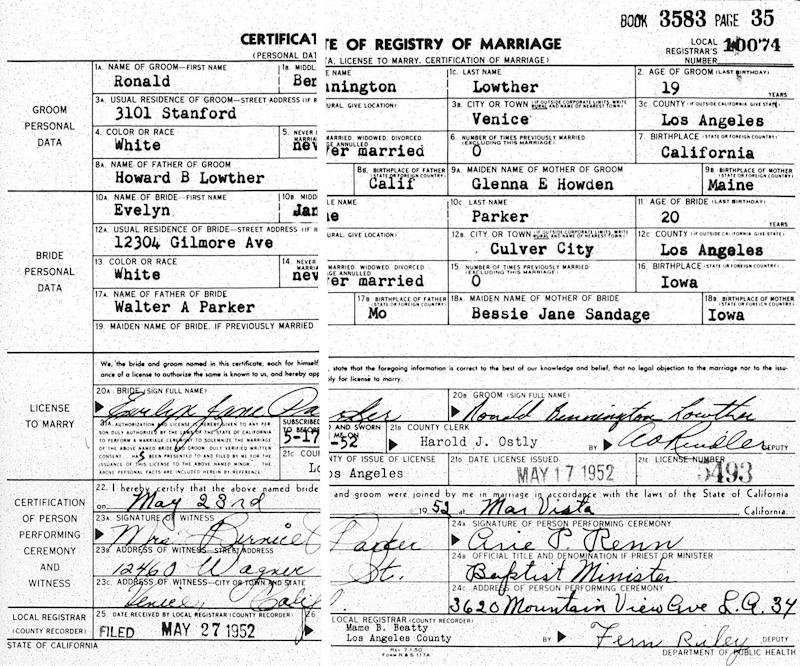 BOOK 3583 PAGE 35
CERTIFICATE OF REGISTRY OF MARRIAGE
LOCAL REGISTRAR'S NUMBER 10074
1A. NAME OF GROOM—FIRST NAME 1B. MIDDL E NAME 1C. LAST NAME 2. AGE OF GROOM (LAST BIRTHDAY)
Ronald Ben nington Lowther 19 YEARS
3A. USUAL RESIDENCE OF GROOM—STREET ADDRESS (IF R URAL, GIVE LOCATION) 3B. CITY OR TOWN 3C. COUNTY (IF OUTSIDE CALIFORNIA GIVE STATE)
3101 Stanford Venice Los Angeles
GROOM PERSONAL DATA
4. COLOR OR RACE 5. NEVER MARRIED, WIDOWED, DIVORCED, 6. NUMBER OF TIMES PREVIOUSLY MARRIED (EXCLUDING THIS MARRIAGE) 7. BIRTHPLACE (STATE OR FOREIGN COUNTRY)
White never married 0 California
8A. NAME OF FATHER OF GROOM 8B. BIRTHPLACE OF FATHER (STATE OR FOREIGN COUNTRY) 9A. MAIDEN NAME OF MOTHER OF GROOM 9B. BIRTHPLACE OF MOTHER (STATE OR FOREIGN COUNTRY)
Howard B Lowther Calif Glenna E Howden Maine
10A. NAME OF BRIDE—FIRST NAME 10B. MIDD LE NAME 10C. LAST NAME 11. AGE OF BRIDE (LAST BIRTHDAY)
Evelyn Jane Parker 20 YEARS
12A. USUAL RESIDENCE OF BRIDE—STREET ADDRESS (IF R URAL, GIVE LOCATION) 12B. CITY OR TOWN 12C. COUNTY (IF OUTSIDE CALIFORNIA GIVE STATE)
12304 Gilmore Ave Culver City Los Angeles
BRIDE PERSONAL DATA
13. COLOR OR RACE 14. NEVER MARRIED, WIDOWED, DIVORCED, 15. NUMBER OF TIMES PREVIOUSLY MARRIED (EXCLUDING THIS MARRIAGE) 16. BIRTHPLACE (STATE OR FOREIGN COUNTRY)
White never married 0 Iowa
17A. NAME OF FATHER OF BRIDE 17B. BIRTHPLACE OF FATHER (STATE OR FOREIGN COUNTRY) 18A. MAIDEN NAME OF MOTHER OF BRIDE 18B. BIRTHPLACE OF MOTHER (STATE OR FOREIGN COUNTRY)
Walter A Parker Mo Bessie Jane Sandage Iowa
19. MAIDEN NAME OF BRIDE, IF PREVIOUSLY MARRIED
We, the bride and groom named in this certificate, each for himself, state that the foregoing information is correct to the best of our knowledge and belief, that no legal objection to the marriage nor to the issu-
ance of a license to authorize the same is known to us, and hereby apply for license to marry.
LICENSE TO MARRY
20A. BRIDE (SIGN FULL NAME) 20B. GROOM (SIGN FULL NAME)
Evelyn Jane Parker Ronald Bennington Lowther
SUBSCRIBED AND SWORN TO BEFORE 21B. COUNTY CLERK
5-17-52 Harold J. Ostly BY DEPUTY
21C. COUNTY OF ISSUE OF LICENSE 21D. DATE LICENSE ISSUED 21E. LICENSE NUMBER
Los Angeles MAY 17 1952 5493
CERTIFICATION OF PERSON PERFORMING CEREMONY AND WITNESS
22. I hereby certify that the above named bride and groom were joined by me in marriage in accordance with the laws of the State of California
on May 23rd 1952 at Mar Vista, California.
23A. SIGNATURE OF WITNESS 24A. SIGNATURE OF PERSON PERFORMING CEREMONY
Mrs. Bernice Parker Arie P. Renn
23B. ADDRESS OF WITNESS STREET ADDRESS 24B. OFFICIAL TITLE AND DENOMINATION IF PRIEST OR MINISTER
12460 Wagner St. Baptist Minister
23C. ADDRESS OF WITNESS—CITY OR TOWN AND STATE 24C. ADDRESS OF PERSON PERFORMING CEREMONY
Venice Calif. 3620 Mountain View Ave L.A. 34
LOCAL REGISTRAR (COUNTY RECORDER)
25. DATE RECEIVED BY LOCAL REGISTRAR (COUNTY RECORDER) 26 LOCAL REGISTRAR (COUNTY RECORDER)
FILED MAY 27 1952 Mame B. Beatty Los Angeles County BY Fern Ruley DEPUTY
STATE OF CALIFORNIA REV 7-1-50 FORM R & S 117A DEPARTMENT OF PUBLIC HEALTH